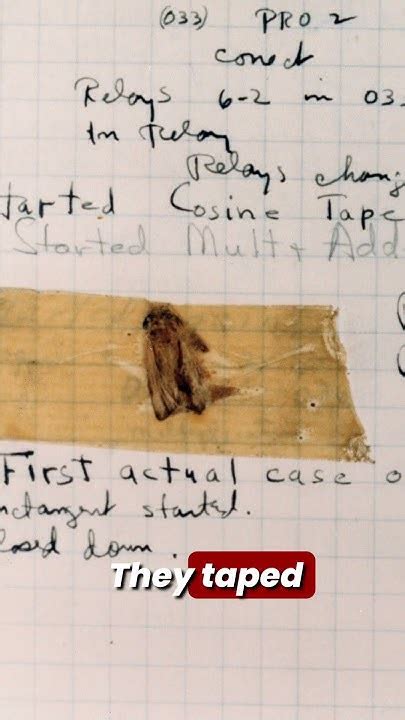 (033) PRO 2
conect
Relays 6-2 in 03
In Relay
Relays chang
tarted Cosine Tape
Started Mult + Add
First actual case o
ctangent started.
losed down.
They taped